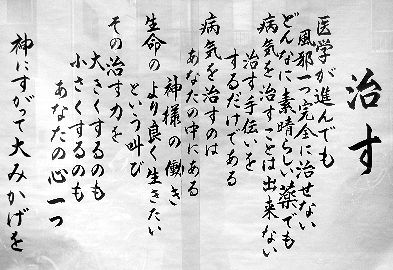 治す
医学が進んでも
風邪一つ完全に治せない
どんなに素晴らしい薬でも
病気を治すことは出来ない
治す手伝いを
するだけである
病気を治すのは
あなたの中にある
神様の働き
生命の より良く生きたい
という叫び
その治す力を
大きくするのも
小さくするのも
あなたの心一つ
神にすがって大みかげを